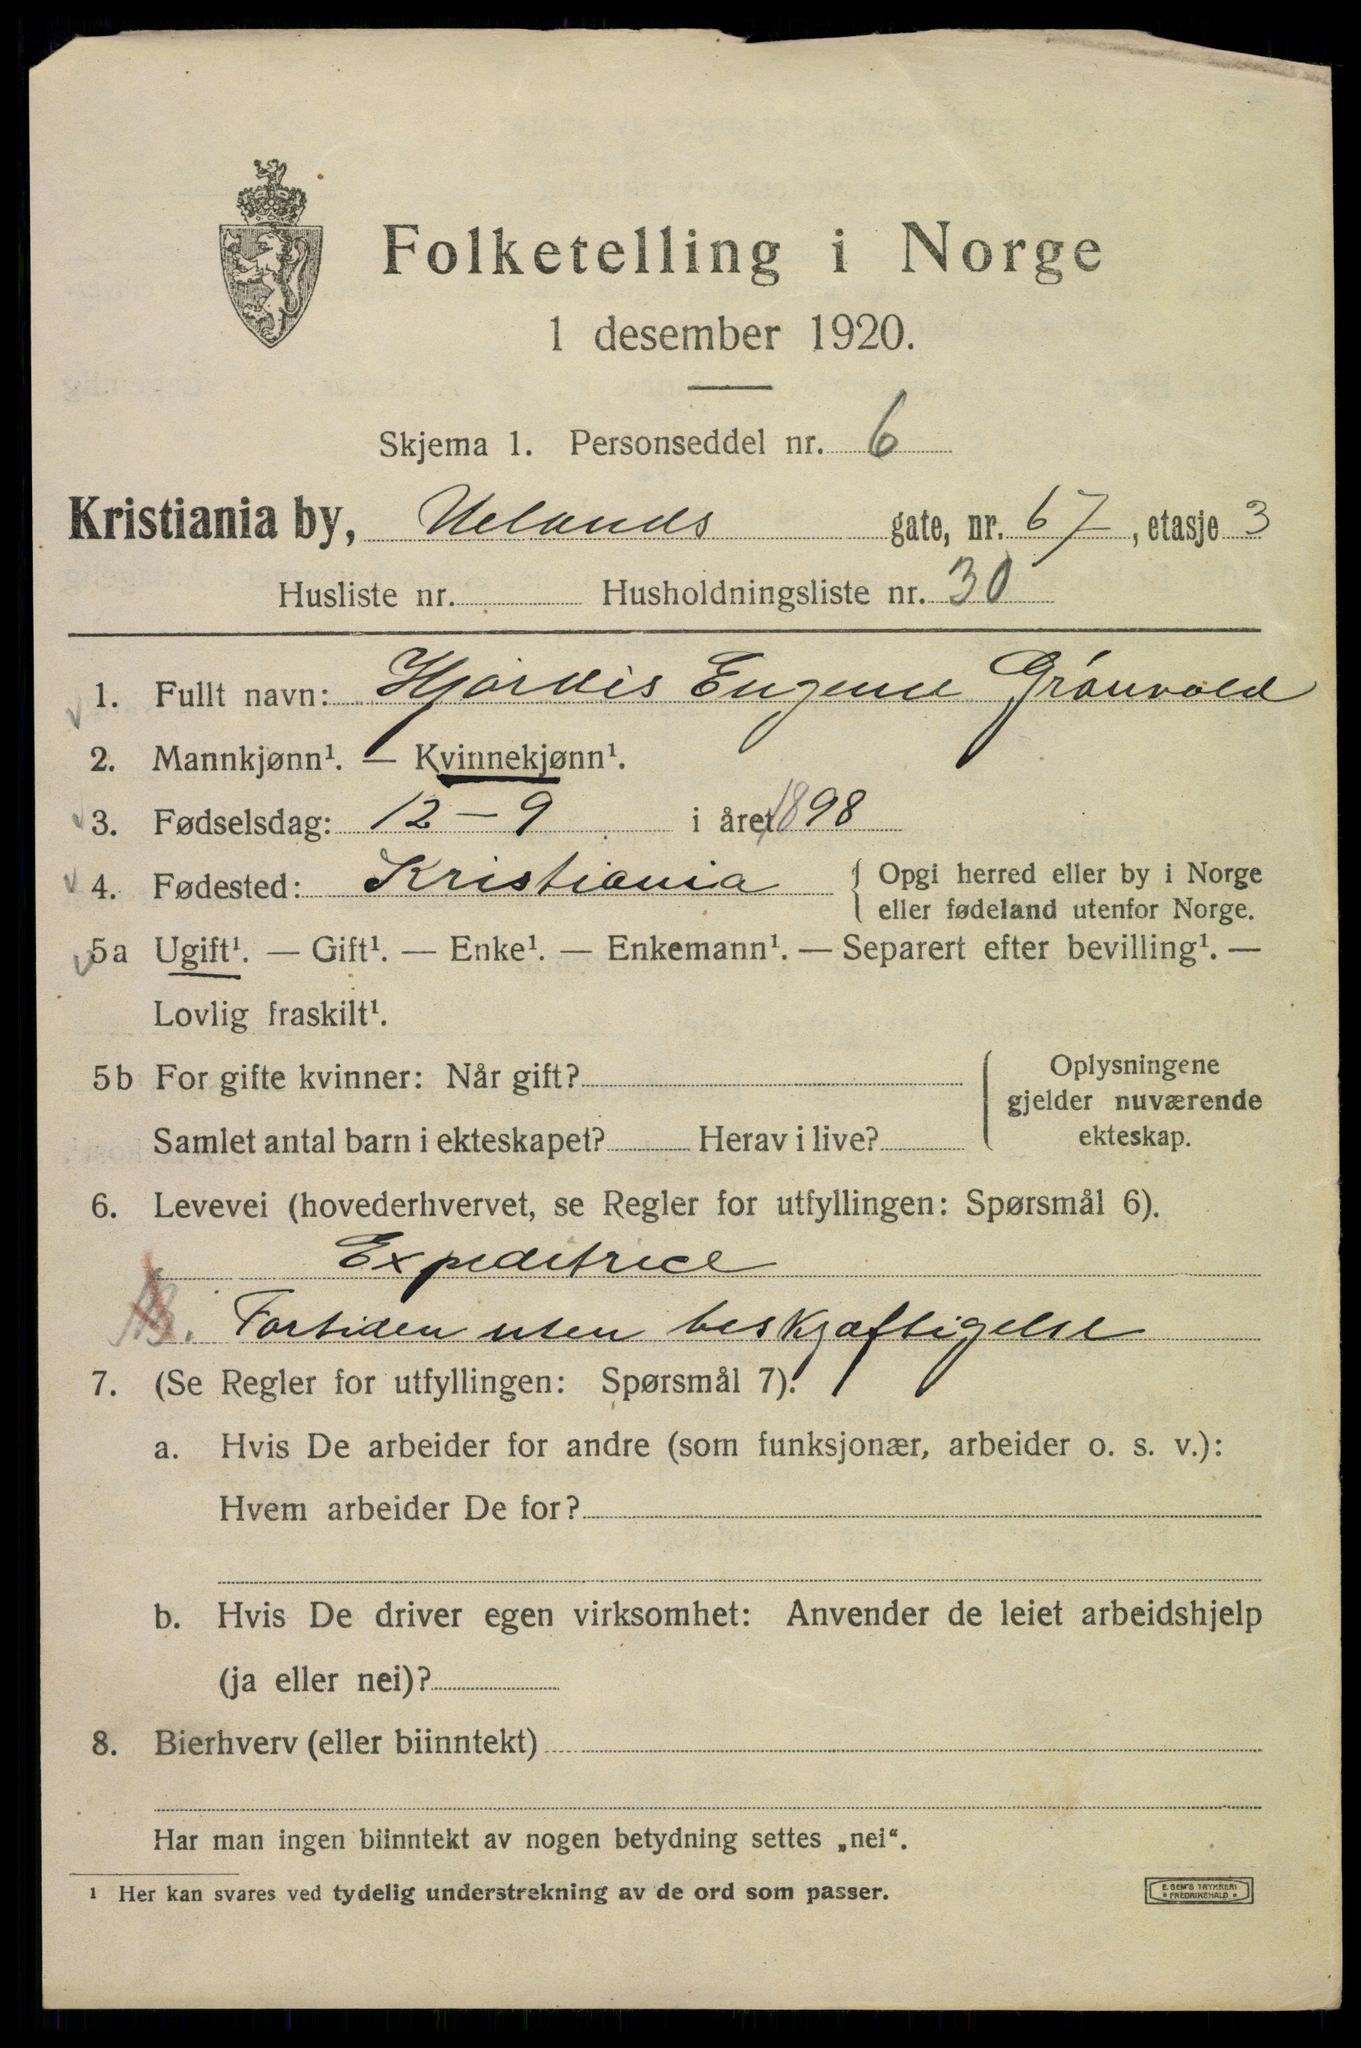 Folketelling i Norge
1 desember 1920.
Skjema 1. Personseddel nr. 6
Kristiania by, Uelands gate, nr. 67, etasje 3
Husliste nr. Husholdningsliste nr. 30
1. Fullt navn: Hjørdis Eugenie Grönvold
2. Mannkjønn¹. — Kvinnekjønn¹.
3. Fødselsdag: 12-9 i året 1898
4. Fødested: Kristiania { Opgi herred eller by i Norge
eller fødeland utenfor Norge.
5a Ugift¹. — Gift¹. — Enke¹. — Enkemann¹. — Separert efter bevilling¹. —
Lovlig fraskilt¹.
5b For gifte kvinner: Når gift? { Oplysningene
gjelder nuværende
Samlet antal barn i ekteskapet? Herav i live? ekteskap.
6. Levevei (hovederhvervet, se Regler for utfyllingen: Spørsmål 6).
Expeditrice
Fortiden uten beskjæftigelse
7. (Se Regler for utfyllingen: Spørsmål 7).
a. Hvis De arbeider for andre (som funksjonær, arbeider o. s. v.):
Hvem arbeider De for?
b. Hvis De driver egen virksomhet: Anvender de leiet arbeidshjelp
(ja eller nei)?
8. Bierhverv (eller biinntekt)
Har man ingen biinntekt av nogen betydning settes „nei“.
¹ Her kan svares ved tydelig understrekning av de ord som passer.
E. SEM'S TRYKKERI
* FREDRIKSHALD *